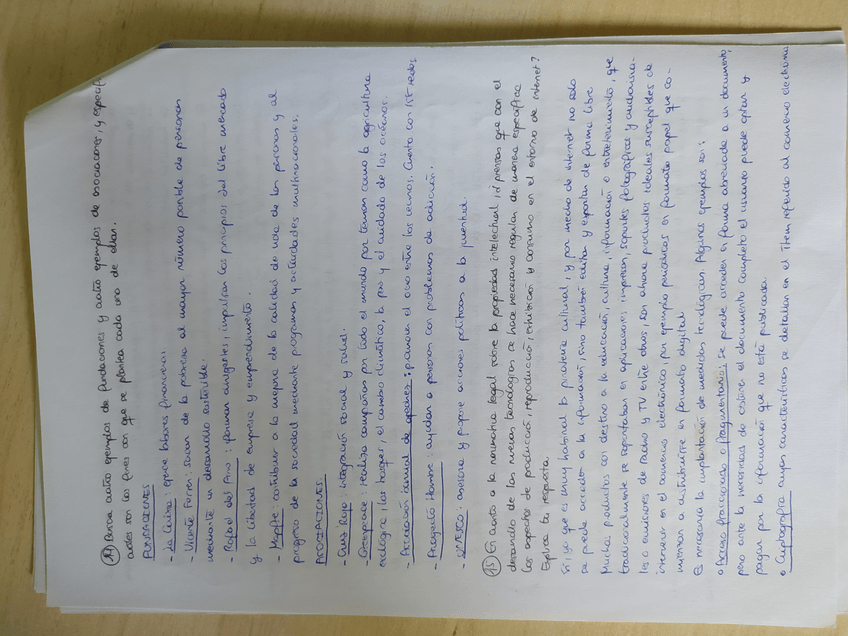 14) Busca cuatro ejemplos de fundaciones y cuatro ejemplos de asociaciones, y especifi
cuáles son los fines con que se plantea cada una de ellas.
FUNDACIONES
- La Caixa: ejerce labores financieras
- Vicente Ferrer: sacar de la pobreza al mayor número posible de personas
mediante un desarrollo sostenible.
- Rafael del Pino: forman dirigentes, impulsan los principios del libre mercado
y la libertad de empresa y emprendimiento.
- Mapfre: contribuir a la mejora de la calidad de vida de las personas y al
progreso de la sociedad mediante programas y actividades multinacionales.
ASOCIACIONES
- Cruz Roja: integración social y salud.
- Greenpeace: realiza campañas por todo el mundo por temas como la agricultura
ecológica, los bosques, el cambio climático, la paz y el cuidado de los océanos.
- Asociación juvenil de : promueve el ocio entre los vecinos. Cuenta con 157 socios
- Proyecto Hombre: ayudan a personas con problemas de adicción.
- : asesora y propone acciones políticas a la juventud.
15) En cuanto a la normativa legal sobre la propiedad intelectual, ¿piensas que con el
desarrollo de las nuevas tecnologías se hace necesario regular de manera específica
los aspectos de producción, reproducción, exhibición y consumo en el entorno de internet?
Explica tu respuesta.
Sí, ya que es muy habitual la piratería cultural, y por medio de internet no solo
se puede acceder a la información, sino también editar y exportar de forma libre
Muchos productos con destino a la educación, cultura, información o entretenimiento, que
tradicionalmente se soportaban en aplicaciones, impresos, soportes fotográficos y audiovisua-
les o emisiones de radio y TV entre otros, son ahora productos ideales susceptibles de
intervenir en el comercio electrónico, por ejemplo periódicos en formato papel que co-
mienzan a distribuirse en formato digital.
Es necesaria la implantación de medidas tecnológicas. Algunos ejemplos son:
• Acceso fraccionado o fragmentario: Se puede acceder en forma abreviada a un documento,
pero ante la necesidad de obtener el documento completo el usuario puede optar y
pagar por la información que no está publicada.
• Cuyas características se detallan en el ítem referido al comercio electrónico